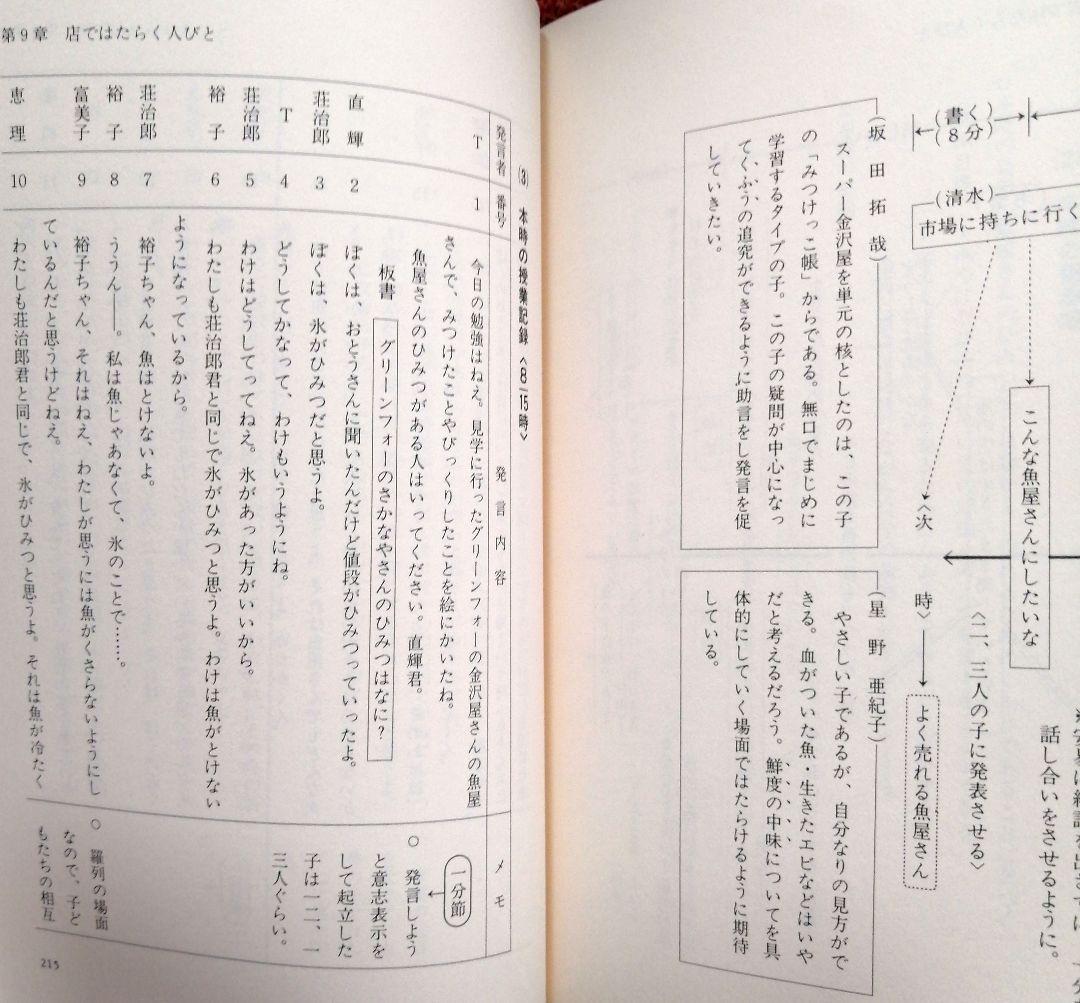 (書く
8分)
(清水)
市場に持ちに行く
こんな魚屋さんにしたいな
〈次
時〉
よく売れる魚屋さん
〈二、三人の子に発表させる〉
話し合いをさせるように。
(坂田拓哉)
スーパー金沢屋を単元の核としたのは、この子
の「みつけっこ帳」からである。無口でまじめに
学習するタイプの子。この子の疑問が中心になっ
てくふうの追究ができるように助言をし発言を促
していきたい。
(星野亜紀子)
やさしい子であるが、自分なりの見方がで
きる。血がついた魚・生きたエビなどはいや
だと考えるだろう。鮮度の中味についてを具
体的にしていく場面ではたらけるように期待
している。
第9章 店ではたらく人びと
(3) 本時の授業記録〈8/15時〉
発言者 番号 発言内容 メモ
T 1 今日の勉強はねえ。見学に行ったグリーンフォーの金沢屋さんの魚屋
さんで、みつけたことやびっくりしたことを絵にかいたね。
魚屋さんのひみつがある人はいってください。直輝君。
板書 グリーンフォーのさかなやさんのひみつはなに?
直輝 2 ぼくは、おとうさんに聞いたんだけど値段がひみつっていったよ。
荘治郎 3 ぼくは、氷がひみつだと思うよ。
T 4 どうしてかなって、わけもいうようにね。
荘治郎 5 わけはどうしてってねえ。氷があった方がいいから。
裕子 6 わたしも荘治郎君と同じで氷がひみつと思うよ。わけは魚がとけない
ようになっているから。
荘治郎 7 裕子ちゃん、魚はとけないよ。
裕子 8 ううん――。私は魚じゃあなくて、氷のことで……。
富美子 9 裕子ちゃん、それはねえ、わたしが思うには魚がくさらないようにし
ているんだと思うけどねえ。
恵理 10 わたしも荘治郎君と同じで、氷がひみつと思うよ。それは魚が冷たく
一分節
○ 発言しよう
と意志表示を
して起立した
子は一二、一
三人ぐらい。
○ 羅列の場面
なので、子ど
もたちの相互
215